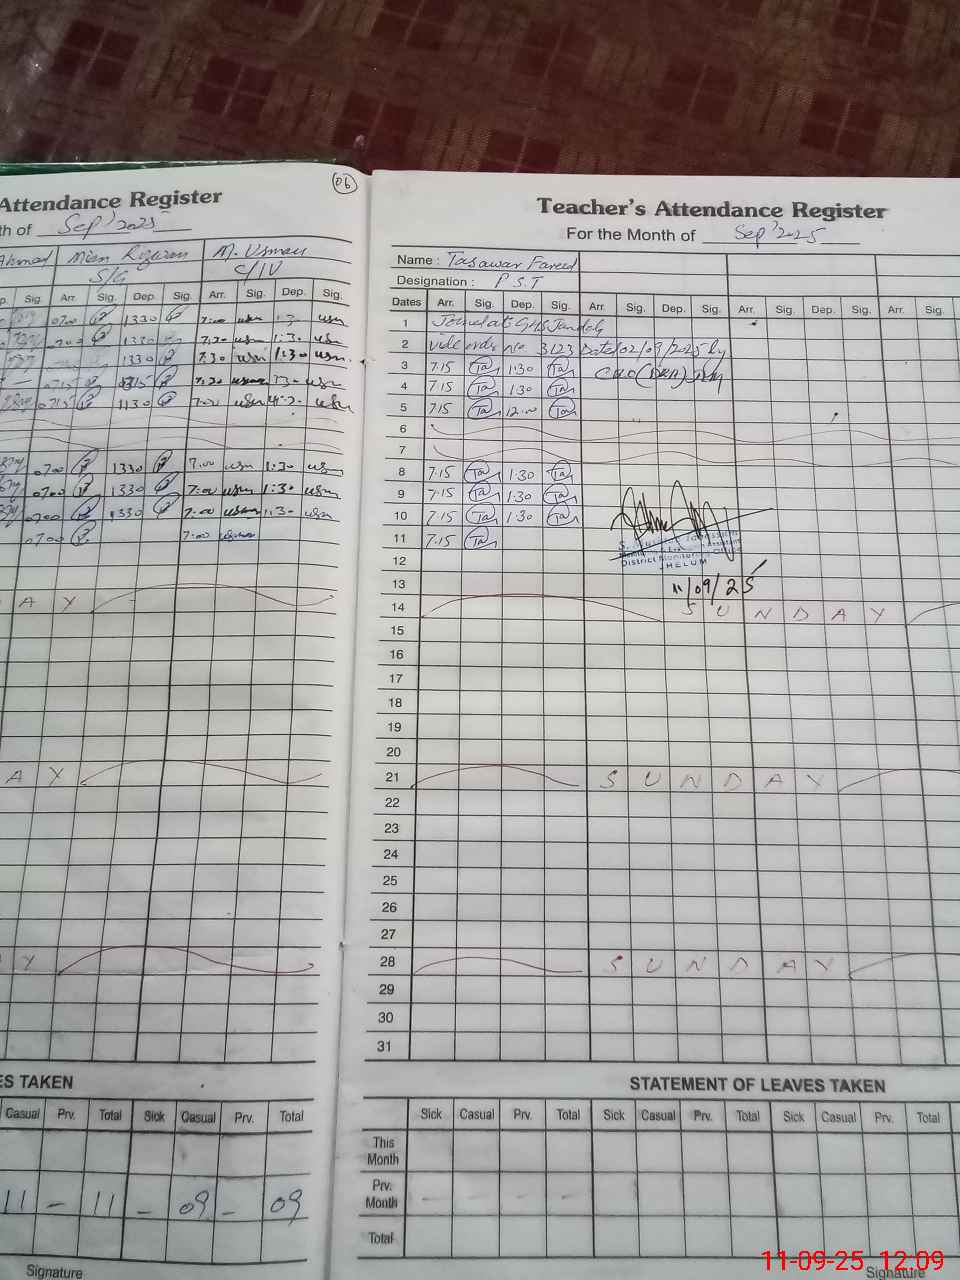 Attendance Register
th of Sep' 2025
Ahmad Mian Rizwan M. Usman
S/G C/IV
p. Sig. Arr. Sig. Dep. Sig. Arr. Sig. Dep. Sig.
0700 1330 7:00 usm 1:3 usm
0700 1330 7:30 usm 1:30 usm
1330 7:30 usm 1:30 usm
0715 7:30 usm 1:30 usm
0715 1130 7:00 usm usm
0700 1330 7:00 usm 1:30 usm
0700 1330 7:00 usm 1:30 usm
0700 1330 7:00 usm 1:30 usm
0700 7:00 usm
A Y
A Y
Y
ES TAKEN
Casual Prv. Total Sick Casual Prv. Total
11 – 11 – 09 – 09
Signature
06
Teacher's Attendance Register
For the Month of Sep' 2025
Name : Tasawar Fareed
Designation : P.S.T
Dates Arr. Sig. Dep. Sig. Arr. Sig. Dep. Sig. Arr. Sig. Dep. Sig. Arr. Sig.
1 Joined at
2 vide order no. 3123 Dated 02/09/2025 by
3 7:15 Ta 1:30 Ta CEO (DEA)
4 7:15 Ta 1:30 Ta
5 7:15 Ta 12:00 Ta
6
7
8 7:15 Ta 1:30 Ta
9 7:15 Ta 1:30 Ta
10 7:15 Ta 1:30 Ta
11 7:15 Ta
District Monitoring Office
JHELUM
11/09/25
12
13
14 S U N D A Y
15
16
17
18
19
20
21 S U N D A Y
22
23
24
25
26
27
28 S U N D A Y
29
30
31
STATEMENT OF LEAVES TAKEN
Sick Casual Prv. Total Sick Casual Prv. Total Sick Casual Prv. Total
This Month
Prv. Month – – – –
Total
Signature
11-09-25 12:09